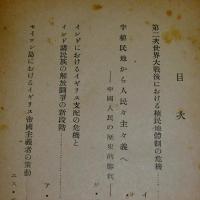 目次
第二次世界大戦後における植民地體制の危機
半植民地から人民々主々義へ
――中國人民の歴史的勝利――
インドにおけるイギリス支配の危機と
インド諸民族の解放闘争の新段階
セイロン島におけるイギリス帝國主義者の策動